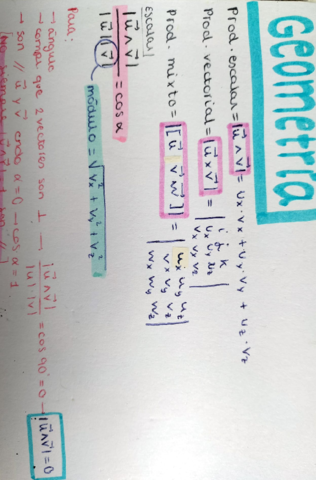 Geometría
Prod. escalar = |u⃗ ∧ v⃗| = ux · vx + uy · vy + uz · vz
Prod. vectorial = |u⃗ x v⃗| = | i j k
ux uy uz
vx vy vz |
Prod. mixto = |[u⃗ v⃗ w⃗]| = | ux uy uz
vx vy vz
wx wy wz |
Escalar
|u⃗ ∧ v⃗| / |u⃗| |v⃗| = cos α
módulo = √vx² + vy² + vz²
Para:
→ ángulo
→ compr que 2 vectores son ⊥ → |u⃗ ∧ v⃗| / |u⃗| · |v⃗| = cos 90° = 0 → |u⃗ ∧ v⃗| = 0
→ son // u⃗ y v⃗ cndo α = 0 → cos α = 1